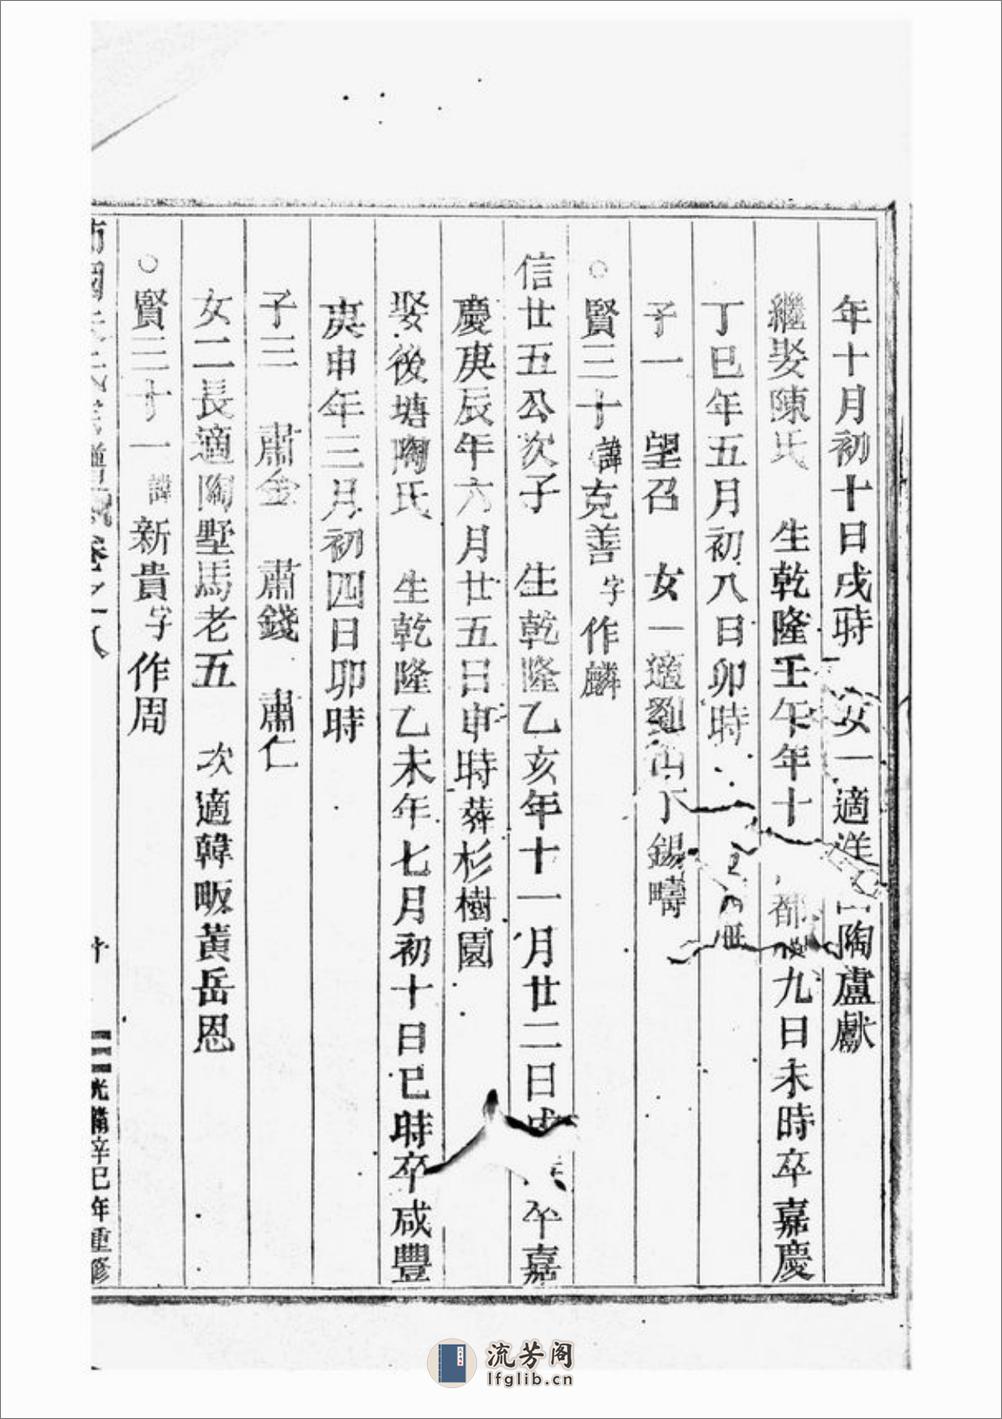 年十月初十日戌時 女一適洋山陶盧獻
繼娶陳氏 生乾隆壬午年十九日未時卒嘉慶
丁巳年五月初八日卯時
子一 望召 女一適劉山丁錫疇
○賢三十諱克善字作麟
信廿五公次子 生乾隆乙亥年十一月廿二日卒嘉
慶庚辰年六月廿五日申時葬杉樹園
娶後塘陶氏 生乾隆乙未年七月初十日巳時卒咸豐
庚申年三月初四日卯時
子三 肅金 肅錢 肅仁
女二長適陶墅馬老五 次適韓畈黃岳恩
○賢三十一諱新貴字作周
卷之八
光緒辛巳年重修
流芳阁
lfglib.cn